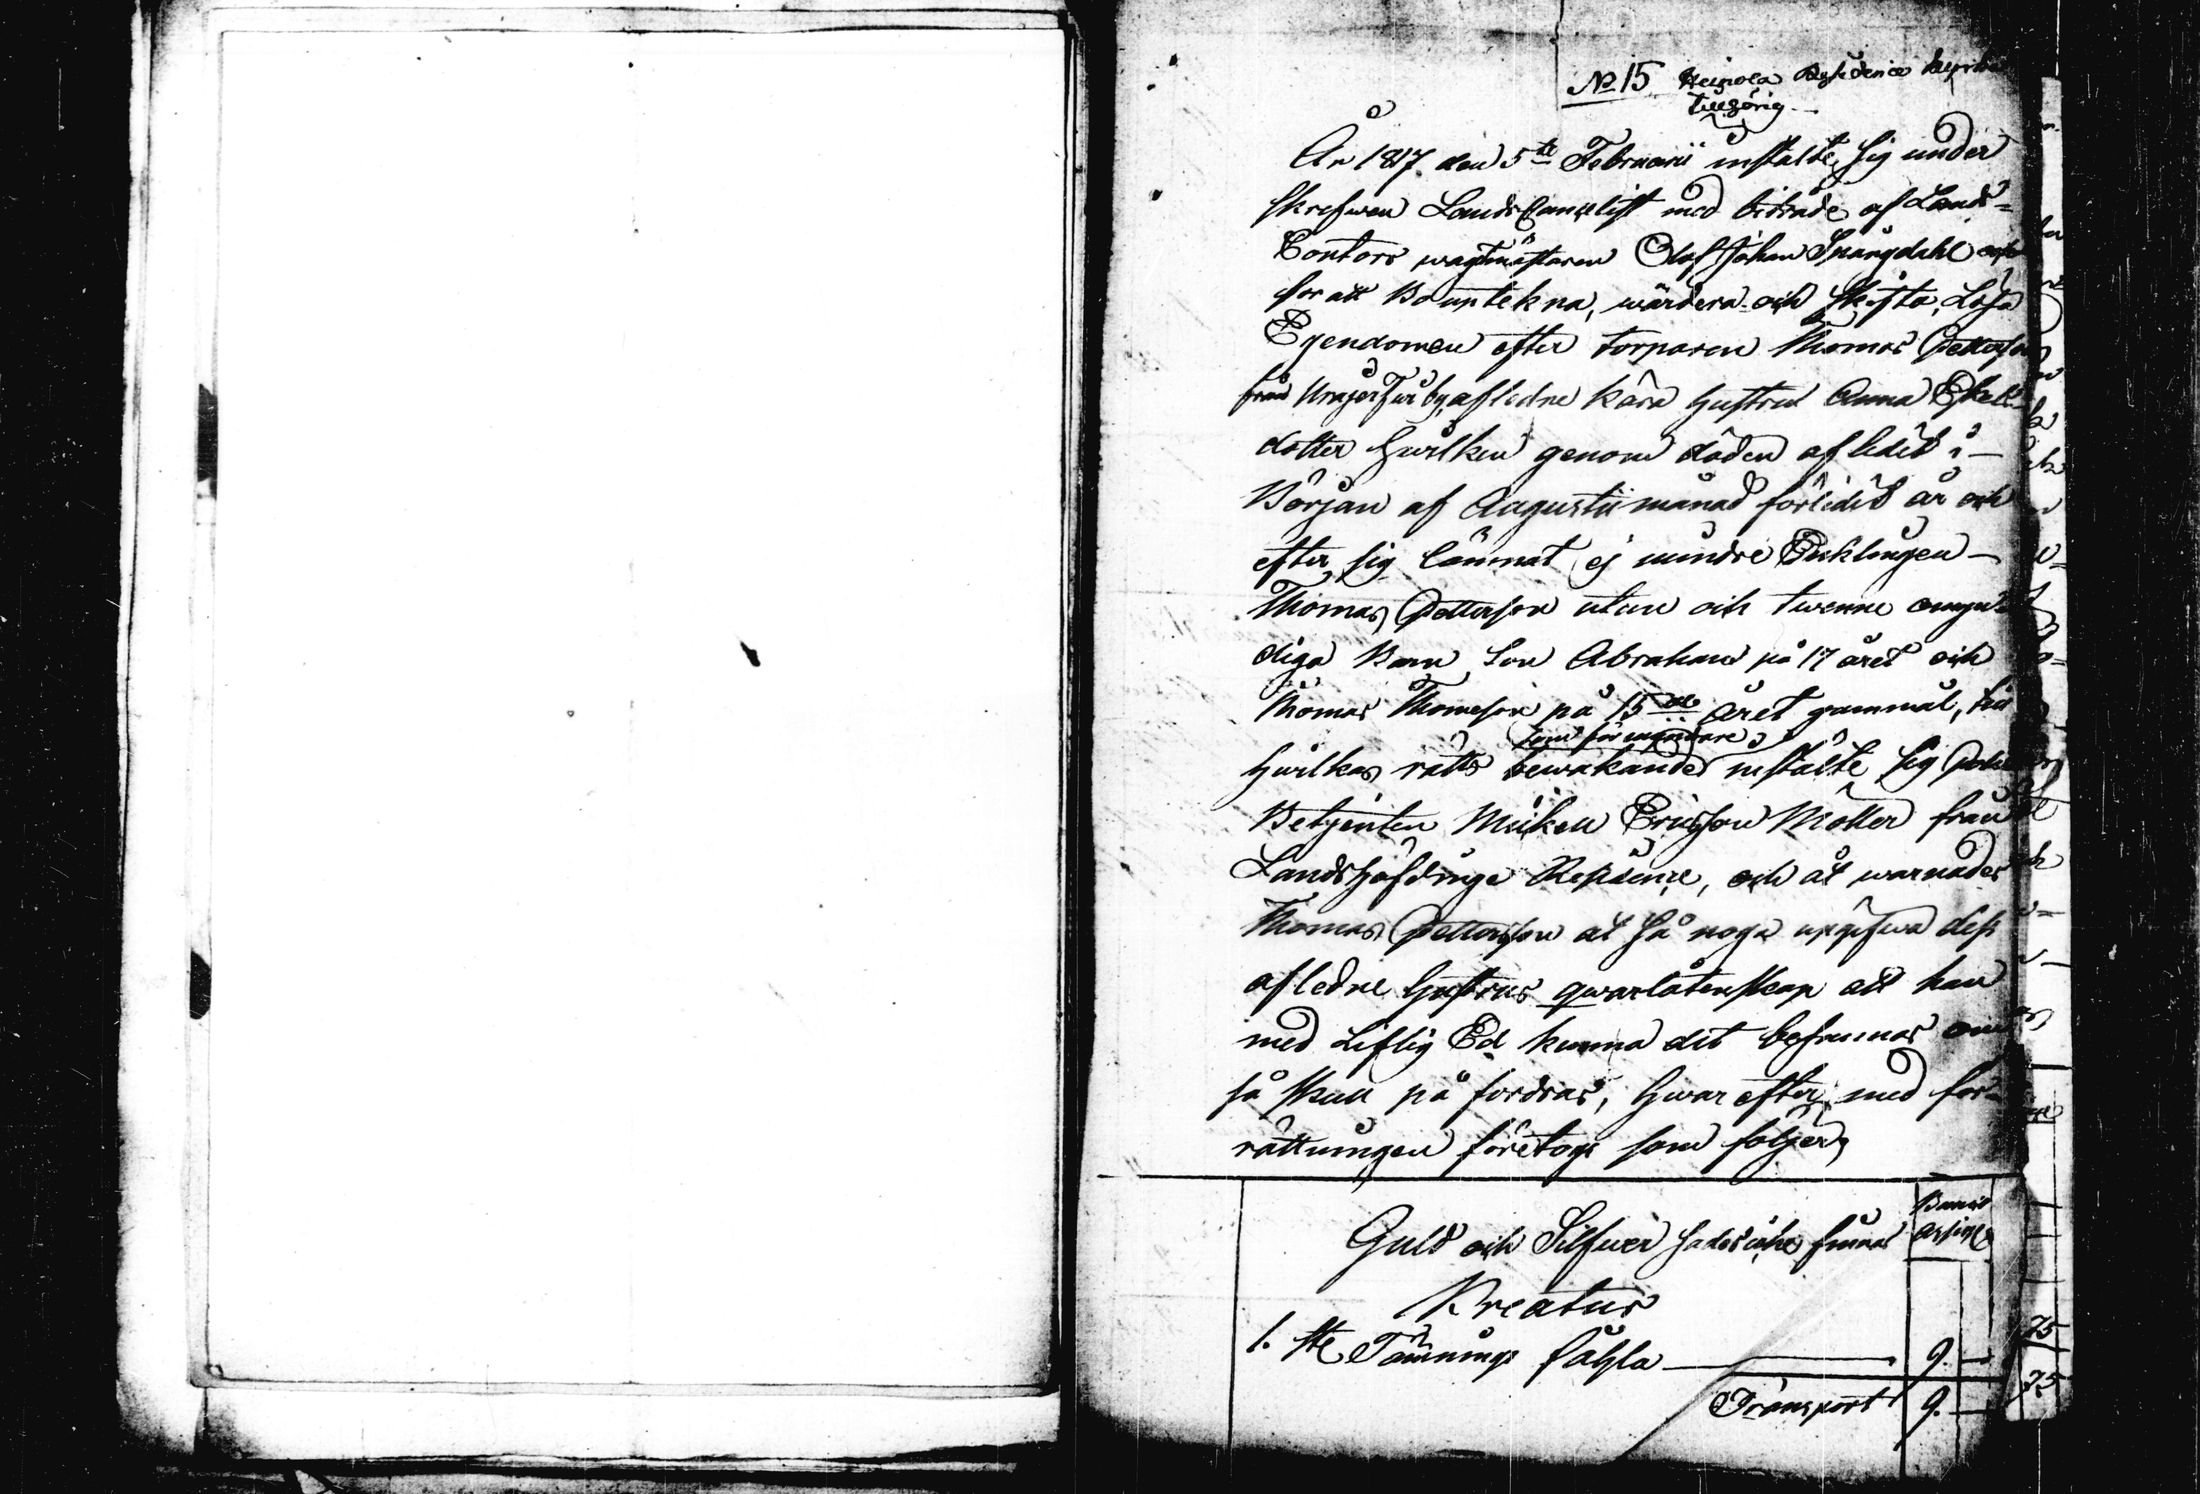 No 15 Heinola Residence kyrka
tillhörig
År 1817 den 5te Februarii instälte sig under
skrefwen Lands Cancelist med biträde af Lands-
Contors wagtmästaren Olof Johan Snängdahl
för att Bouptekna, wärdera och skifta, Lösa
Egendomen efter torparen Thomas Petterson
från by, afledne kära hustru Anna Eskels
dotter hwilken genom döden afledit i
Början af Augustii månad förledit år och
efter sig lämnat ej mindre Enklingen
Thomas Petterson utan och twenne omyn
diga Barn Son Abraham på 17 året och
Thomas Thomeson på 15de året gammal, till
som förmyndare
hwilkas rätts bewakande instälte sig
Betjenten Mickell Ericsson Möller från
Landshöfdinge Residence, och åt warnades
Thomas Petterson at så noga uppgifwa dess
afledne hustrus qwarlåtenskap att han
med Liflig Ed kunna det befinnas om
så skull på fordras, hwarefter med för-
rättningen företogs som följer
Banco
Assign
Guld och Silfwer sades icke finnas
Kreatur
1. st Tämnings fåhla 9. —
Transport 9. —
75
75